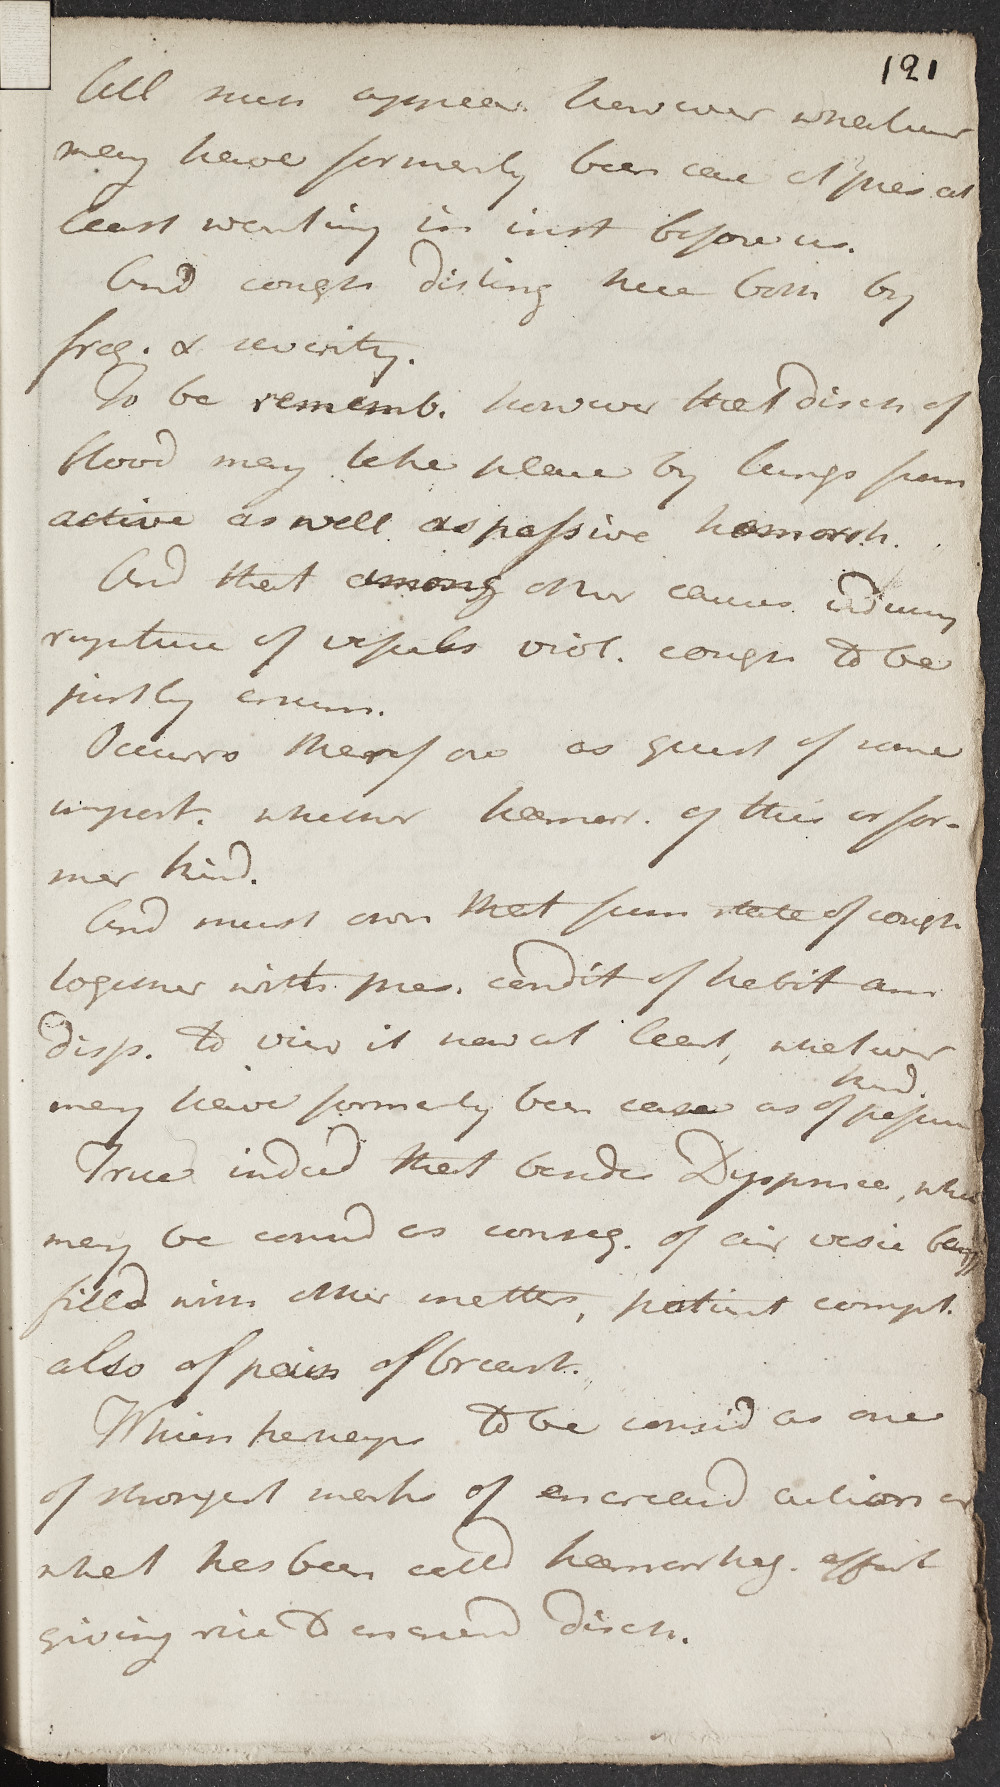 121
All such appear. however whatever
may have formerly been case at pres at
least wanting in inst before us.
And cough disting here both by
freq. & severity.
To be rememb. however that disch of
blood may take place by lungs from
active as well as passive hemorrh.
And that among other causes inducing
rupture of vessels viol. cough to be
justly enum.
Occurrs therefore as quest of some
import. whether hemorr. of this or for-
mer kind.
And must own that from state of cough
together with pres. condit of habit am
disp. to view it now at least, whatever
may have formerly been case as of passive
kind.
True indeed that besides Dyspnœa, which
may be consid as conseq. of air vesic being
filled with other matters, patient compl.
also of pain of breast.
Which perhaps to be consid as one
of strongest marks of encreasd action or
what has been calld hæmorrhag. effort
giving rise to encreasd disch.